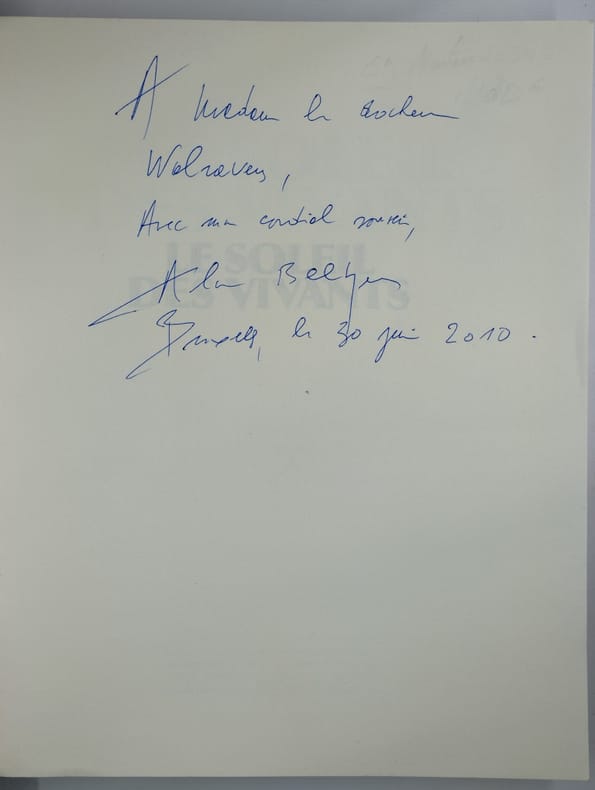 A Madame le Docteur
Walravens,
Avec mon cordial souvenir,
LE SOLEIL
DES VIVANTS
Bruxelles, le 30 juin 2010.